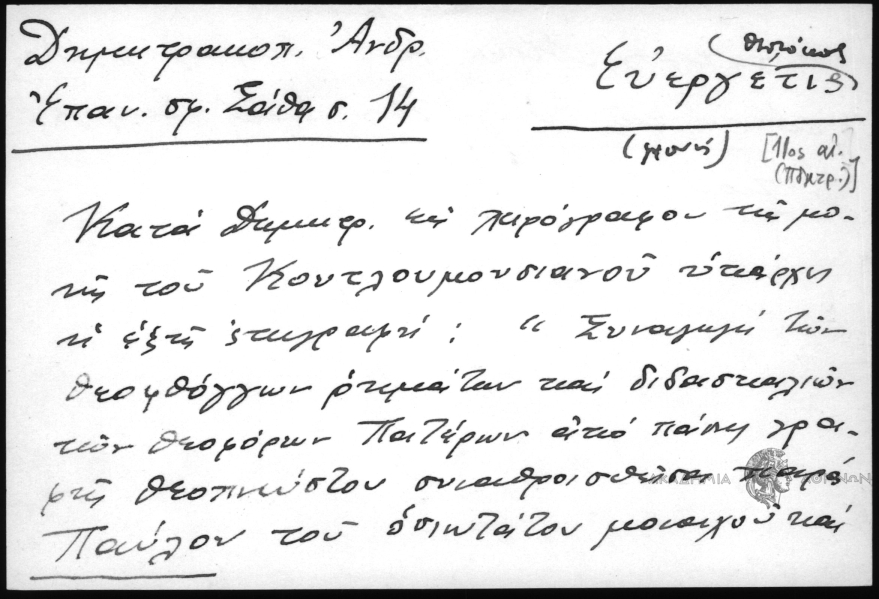 Δημητρακοπ. Ἀνδρ.
Ἐπαν. σφ. Σάθα σ. 14
(θεοτόκος
Εὐεργέτις)
(μονή)
[11ος αἰ.
Κατά Δημητρ. εἰς χειρόγραφον τῆς μο-
νῆς τοῦ Κουτλουμουσιανοῦ ὑπάρχει
ἡ ἑξῆς ἐπιγραφή : " Συναγωγή τῶν
θεοφθόγγων ῥημάτων καί διδασκαλιῶν
τῶν θεοφόρων Πατέρων ἀπό πάσης γρα-
φῆς θεοπνεύστου συναθροισθεῖσα παρά
Παύλου τοῦ ὁσιωτάτου μοναχοῦ καί
ΑΚΑΔΗΜΙΑ ΑΘΗΝΩΝ